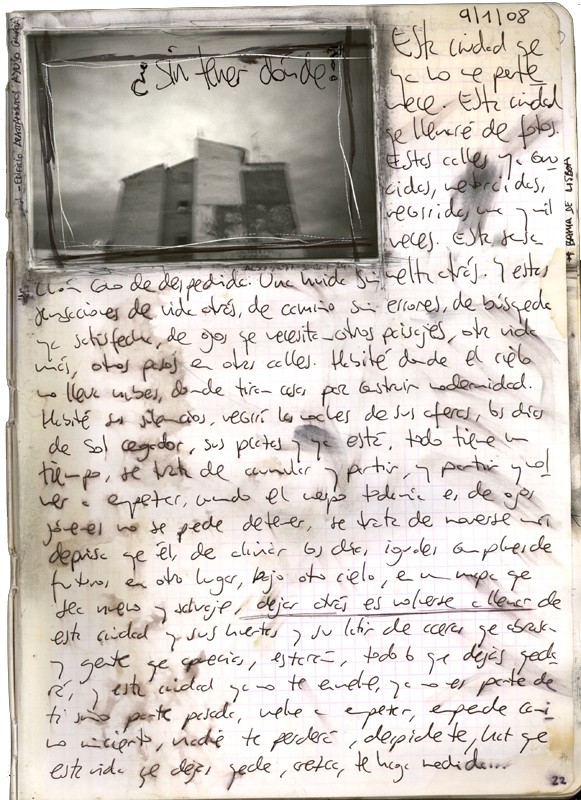 9/1/08
¿Sin tener dónde?
Esta ciudad que
ya no me perte
nece. Esta ciudad
que llenaré de fotos.
Estas calles ya
cidas,
recorridas una y mil
veces. Esta sensa
ción como de despedida. Una huida sin vuelta atrás. Y estas
sensaciones de vida atrás, de camino sin errores, de búsqueda
ya satisfecha, de ojos que necesitan otros paisajes, otra vida
más, otros pasos en otras calles. Habité donde el cielo
no lleva nubes, donde tiran casas por construir modernidad.
Habité sus silencios, recorrí las noches de sus aceras, los días
de sol cegador, sus plazas y ya está, todo tiene un
tiempo, se trata de acumular y partir, y partir y vol
ver a empezar, cuando el cuerpo todavía es de ojos
jóvenes no se puede detener, se trata de moverse más
deprisa que Él, de los días iguales
futuros en otro lugar, bajo otro cielo, en un mapa que
sea nuevo y salvaje, dejar atrás es volverse a llenar de
esta ciudad y sus y su latir de aceras que abrasan
y gente que aprecias, estarán, todo lo que dejas queda
rá, y esta ciudad ya no te envuelve, ya no es parte de
ti sino parte pasada, vuelve a empezar, emprende cami
no incierto, nadie te perderá, despídete, haz que
esta vida que dejas quede, crezca, te haga medida...
22